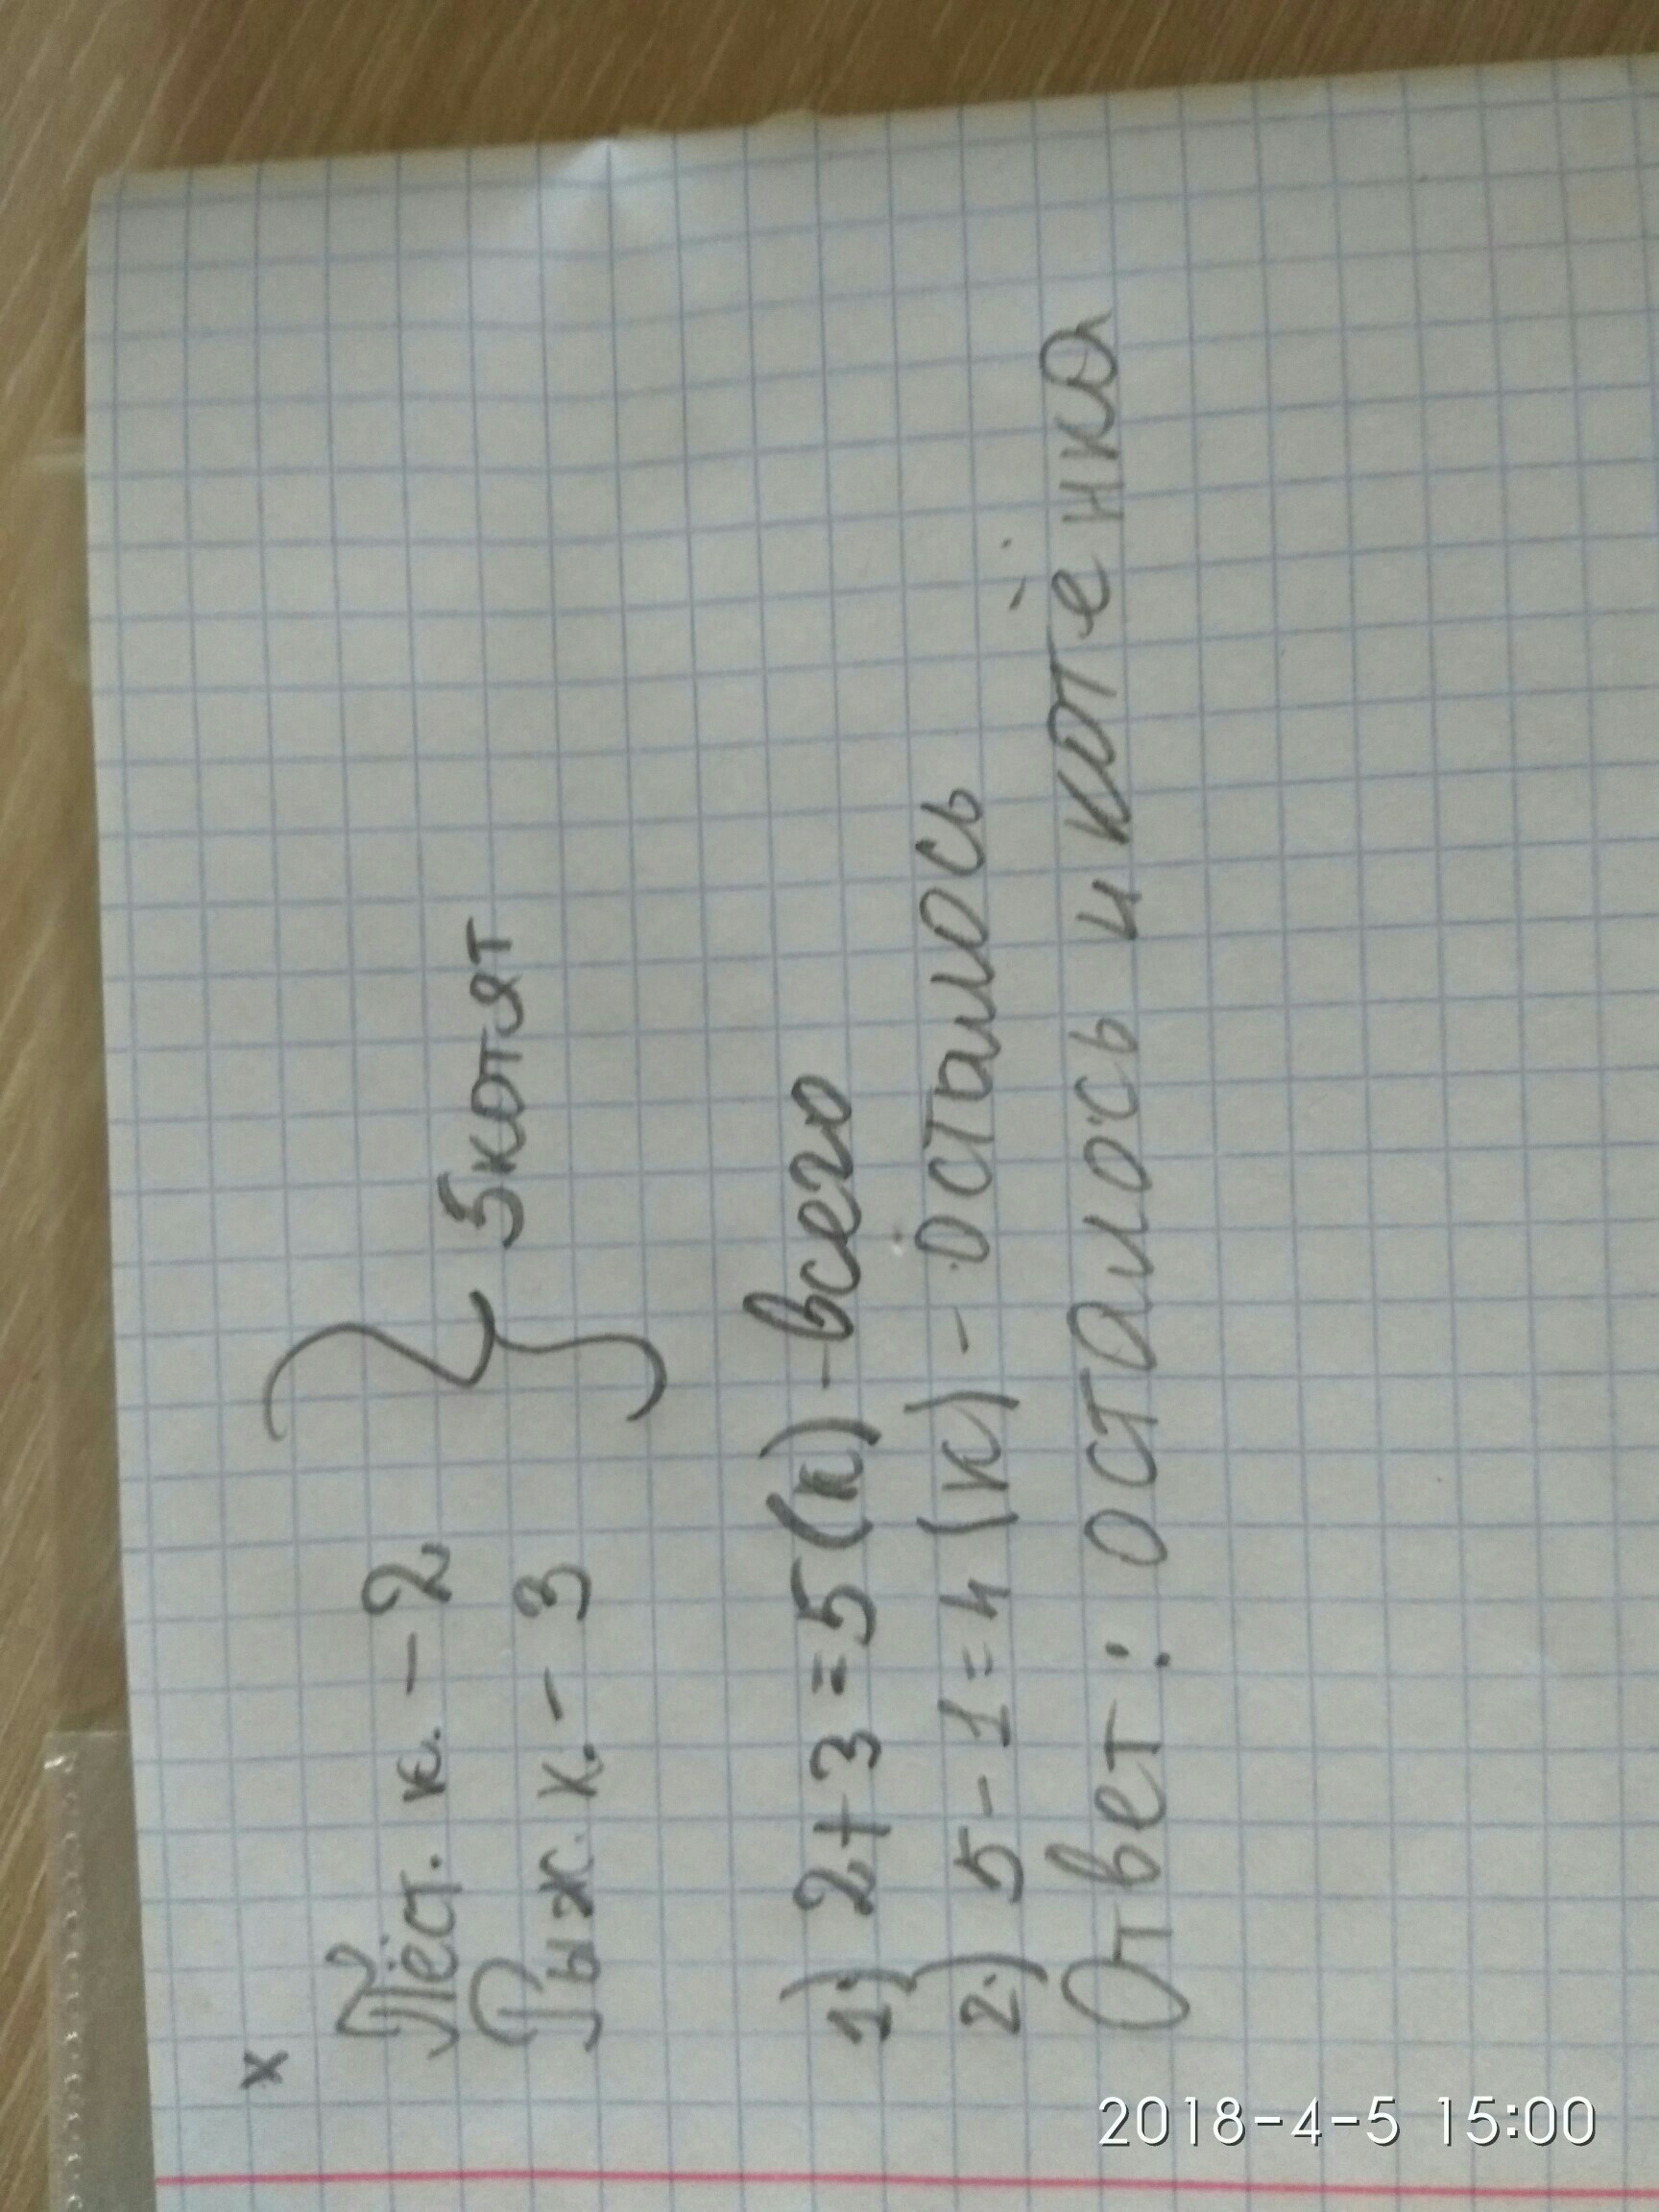 х
Пёст. к. - 2
Рыж. к. - 3
5 котят
1) 2 + 3 = 5 (к) - всего
2) 5 - 1 = 4 (к) - осталось
Ответ: осталось 4 котёнка
2018-4-5 15:00